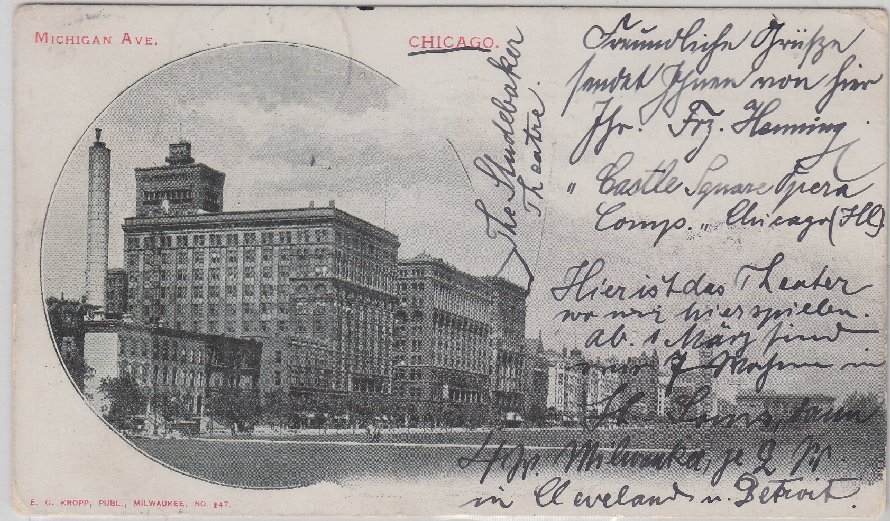 MICHIGAN AVE.
CHICAGO.
The Studebaker
Theatre.
Freundliche Grüsze
sendet Ihnen von hier
Ihr. Frz. Henning
„Castle Square Opera
Comp.„ Chicago (Ill)
Hier ist das Theater
wo wir hier spielen.
ab. 1 März sind
wir 7 Wochen in
St. Louis, dann
4 W. Milwauke, je 2 W.
in Cleveland u. Detroit.
E. C. KROPP, PUBL., MILWAUKEE, NO 247.